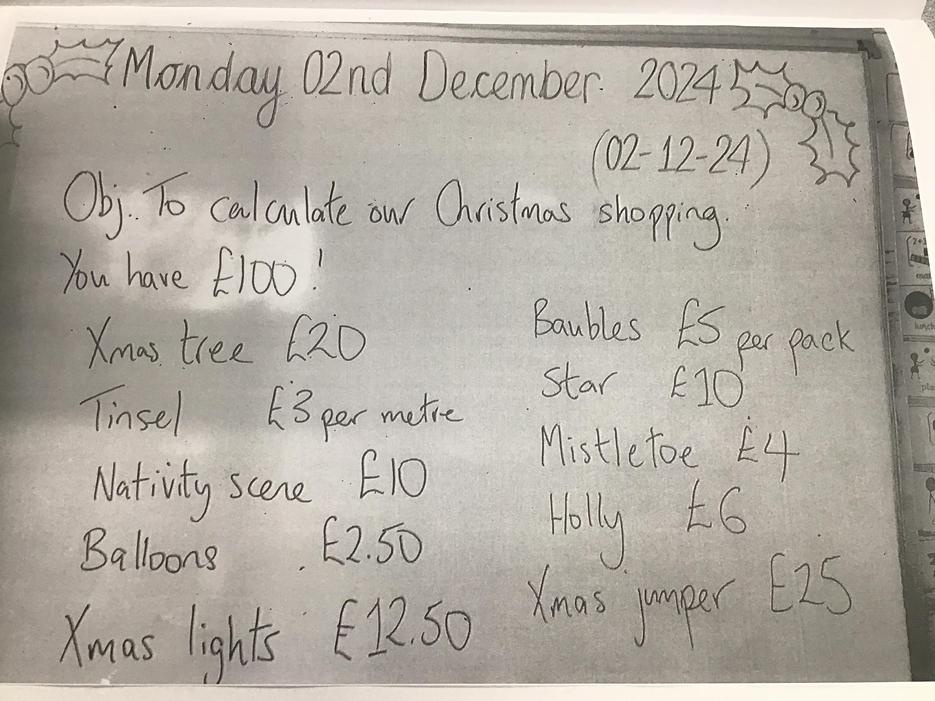 Monday 02nd December. 2024
(02-12-24)
Obj. To calculate our Christmas shopping.
You have £100!
Xmas tree £20
Tinsel £3 per metre
Nativity scene £10
Balloons £2.50
Xmas lights £12.50
Baubles £5 per pack
Star £10
Mistletoe £4
Holly £6
Xmas jumper £25
lunch